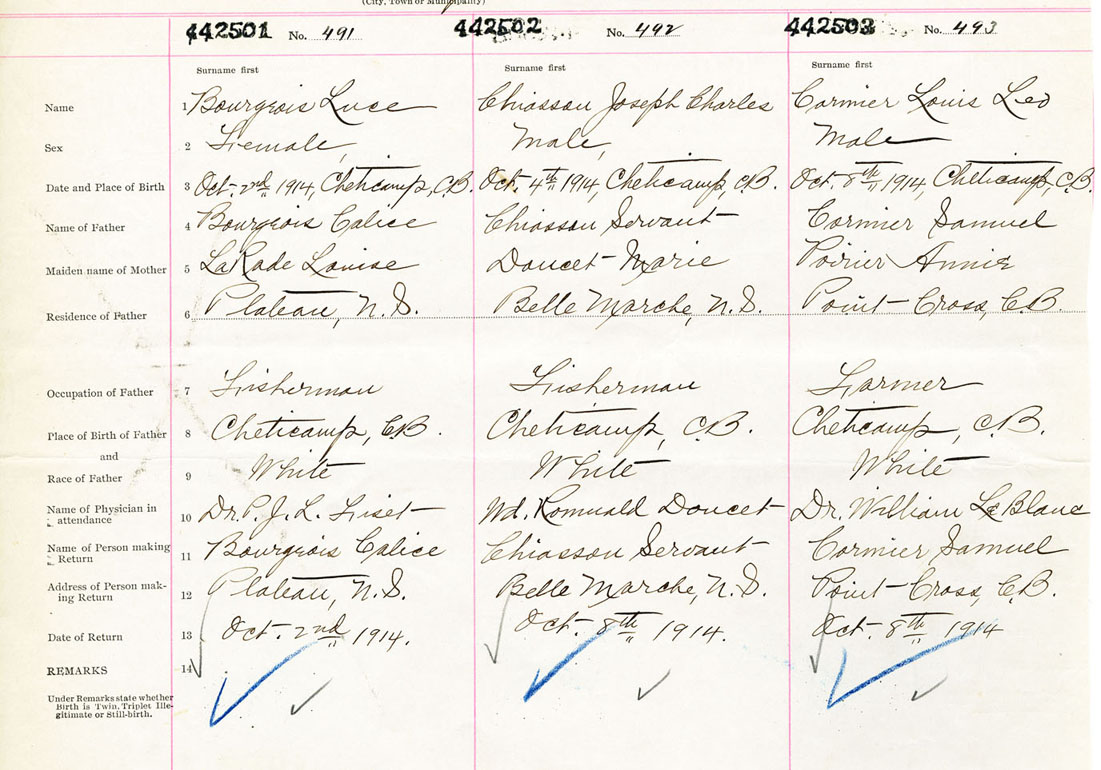 (City, Town or Municipality)
442501 No. 491 442502 No. 492 442503 No. 493
Surname first Surname first Surname first
Name 1 Bourgeois Luce Chiasson Joseph Charles Cormier Louis Leo
Sex 2 Female, Male, Male
Date and Place of Birth 3 Oct. 2nd 1914, Cheticamp, C.B. Oct. 4th 1914, Cheticamp, C.B. Oct. 8th 1914, Cheticamp, C.B.
Name of Father 4 Bourgeois Calice Chiasson Servant Cormier Samuel
Maiden name of Mother 5 LaRade Louise Doucet Marie Poirier Annie
Residence of Father 6 Plateau, N.S. Belle Marche, N.S. Point Cross, C.B.
Occupation of Father 7 Fisherman Fisherman Farmer
Place of Birth of Father 8 Cheticamp, C.B. Cheticamp, C.B. Cheticamp, C.B.
and
Race of Father 9 White White White
Name of Physician in attendance 10 Dr. P. J. L. Fiset Wd. Romuald Doucet Dr. William Le Blanc
Name of Person making Return 11 Bourgeois Calice Chiasson Servant Cormier Samuel
Address of Person mak-ing Return 12 Plateau, N.S. Belle Marche, N.S. Point Cross, C.B.
Date of Return 13 Oct. 2nd 1914. Oct. 8th 1914. Oct. 8th 1914
REMARKS 14
Under Remarks state whether
Birth is Twin, Triplet Ille-
gitimate or Still-birth.